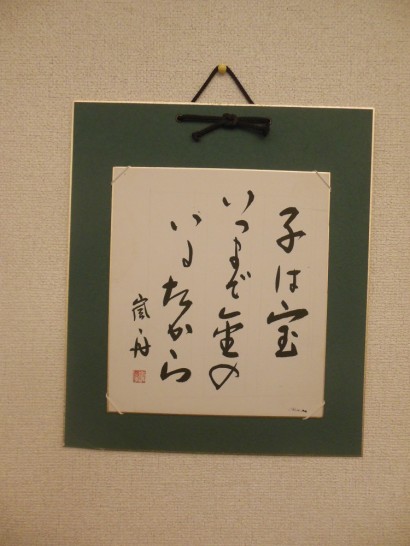 子は宝
いつまで金の
いるたから
嵐舟